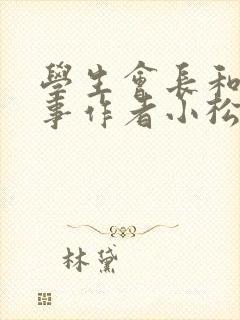 學生會長和
事作者小松
林黛